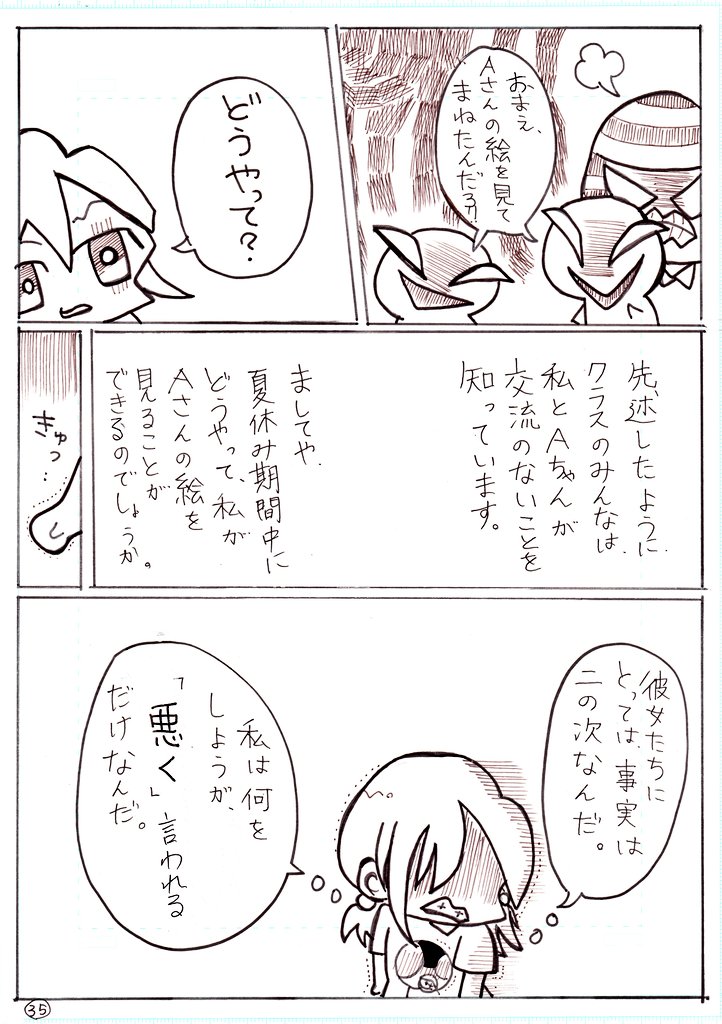 おまえ、
Aさんの絵を見て
まねたんだろ?!
どうやって?
先述したように
クラスのみんなは、
私とAちゃんが
交流のないことを
知っています。
ましてや、
夏休み期間中に
どうやって、私が
Aさんの絵を
見ることが
できるのでしょうか。
きゅっ…
彼女たちに
とっては、事実は
二の次なんだ。
私は何を
しようが、
「悪く」言われる
だけなんだ。
35